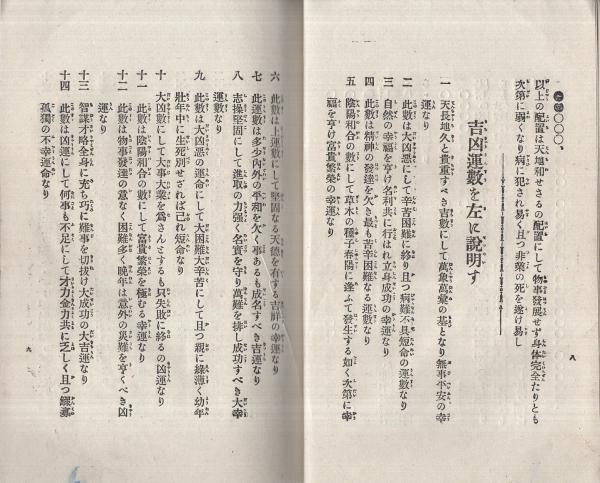 以上の配置は天地和せさるの配置にして物事發展せず身体完全たりとも
次第に弱くなり病に犯され易く且つ非業の死を遂け易し
吉凶運數を左に說明す
一 天長地久と貴重すべき吉數にして萬象萬彙の基となり無事平安の幸
運なり
二 此數は大凶惡にして辛苦困難に終り且つ病難不具短命の運數なり
三 自然の幸福を享け名利共に行はれ立身成功の幸運なり
四 此數は精神の發達を欠き最も苦辛困難なる運數なり
五 陰陽和合の數にして草木の種子春陽に逢ふて發生する如く次第に幸
福を享け富貴繁榮の幸運なり
八
六 此數は上運數にして堅固なる天德を有する吉祥の幸運なり
七 此運數は多少內外の平和を欠く事あるも成名すべき吉運なり
八 志操堅固にして進取の力强く名實を守り萬難を排し成功すべき大幸
運數なり
九 此數は大凶惡の運命にして大困難大辛苦にして且つ親に緣薄く幼年
壯年中に生死別せざれば己れ短命なり
十 大凶數にして大事大業を爲さんとするも只失敗に終るの凶運なり
十一 此數は陰陽和合の數にして富貴繁榮を極むる幸運なり
十二 此數は物事發達の意なく困難多く晩年は意外の災難を享くべき凶
運なり
十三 智謀才略全身に充ち巧に難事を切拔け大成功の大吉運なり
十四 此數は凶運にして何事も不足にして才力金力共に乏しく且つ鰥寡
孤獨の不幸運命なり
九